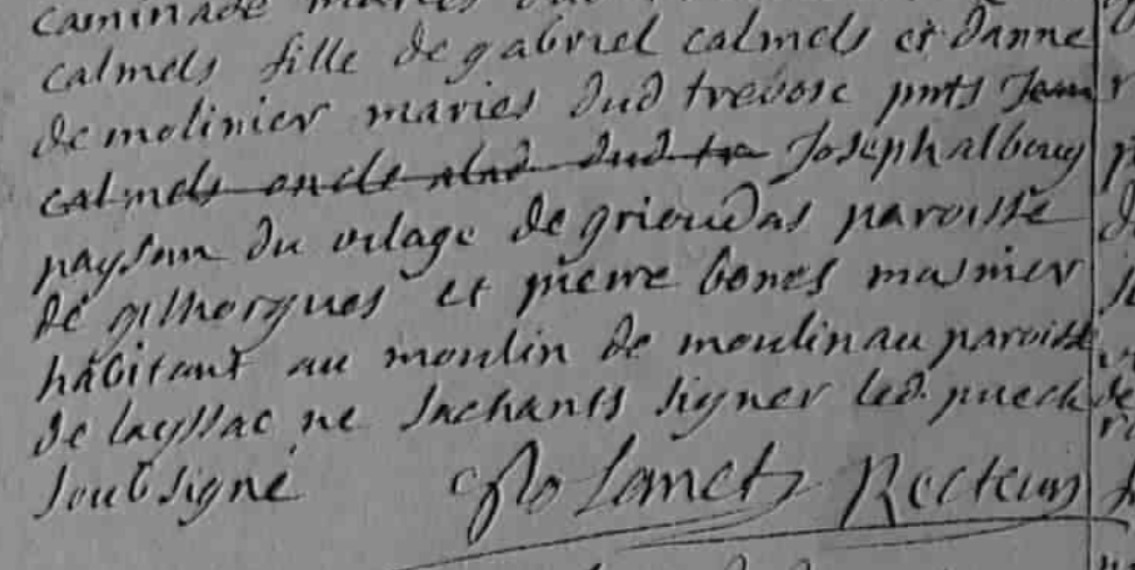 caminade maries dud
calmels fille de gabriel calmels et danne
de molinier maries dud trevosc pnts Jean
calmels oncle dud tre Joseph albouy
paysan du vilage de grioudas paroisse
de gilhorgues et pierre bones masnier
habitant au moulin de moulinau paroisse
de layssac ne sachants signer led. puech
soubsigné Recteur